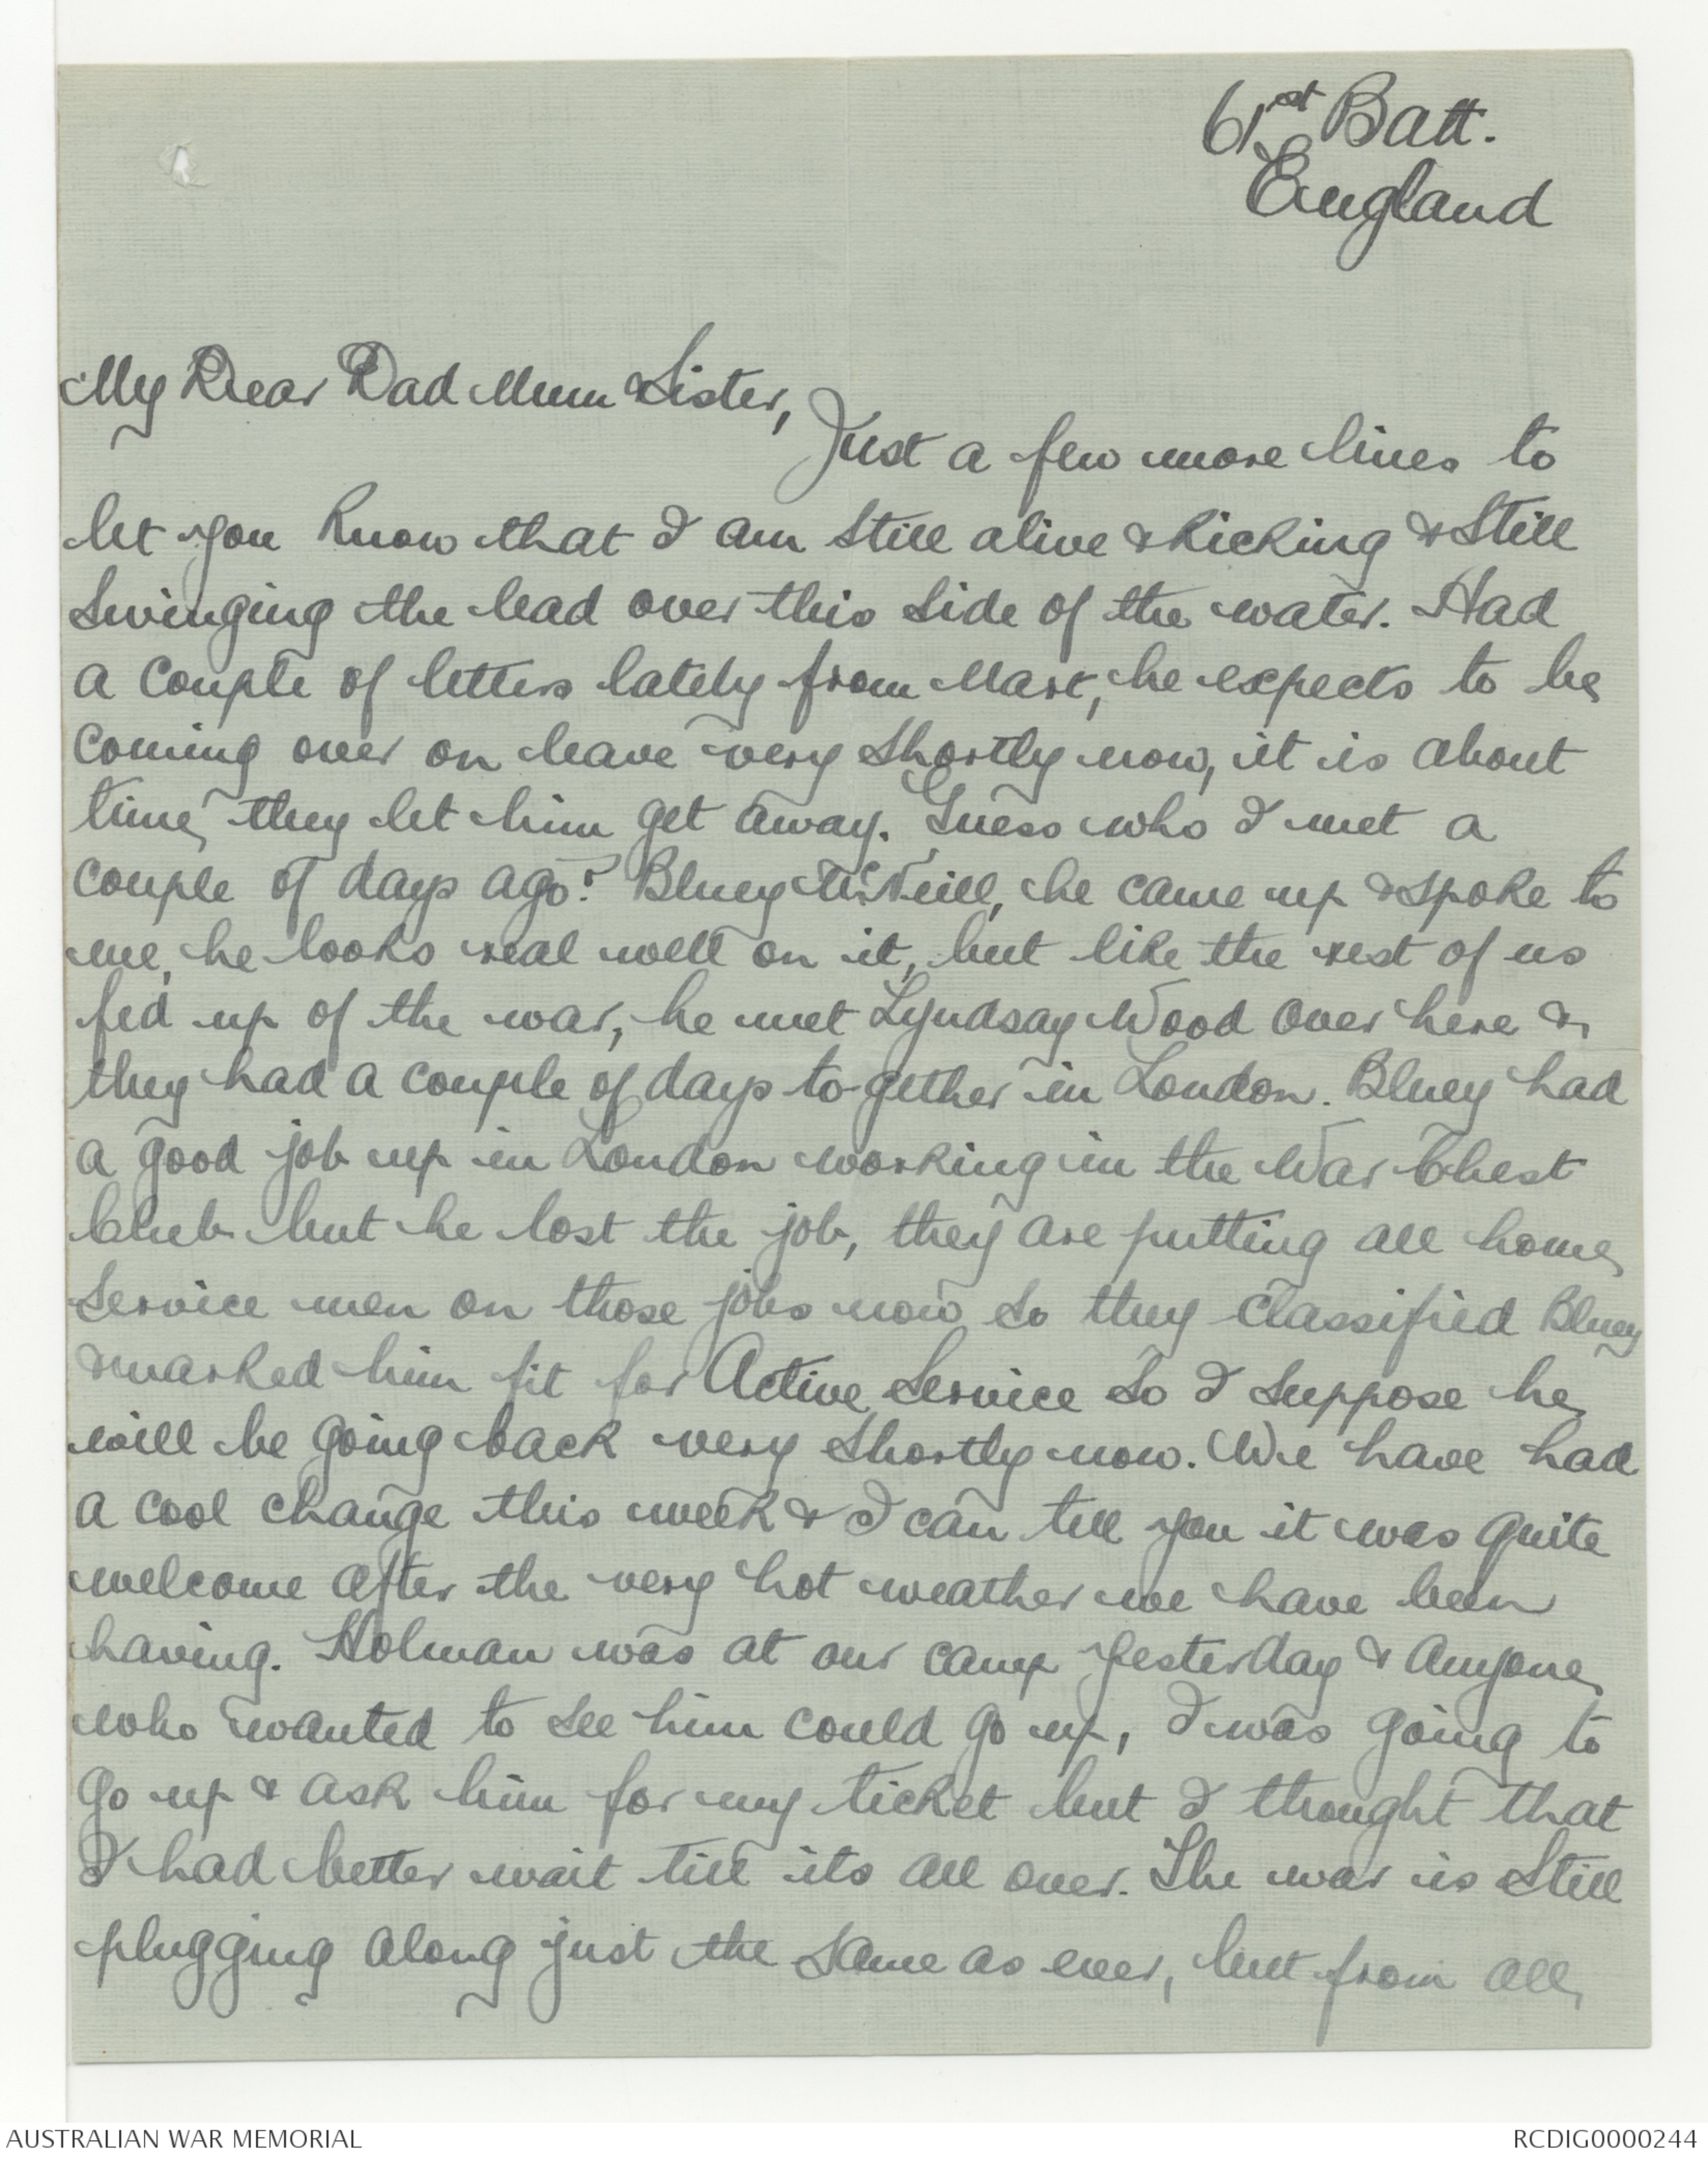 61st Batt.
England
My Dear Dad Mum & Sister,
Just a few more lines to
let you know that I am still alive & kicking & still
swinging the lead over this side of the water. Had
a couple of letters lately from Mark, he expects to be
coming over on leave very shortly now, it is about
time they let him get away. Guess who I met a
couple of days ago? Bluey McNeill, he came up & spoke to
me, he looks real well on it, but like the rest of us
fed up of the war, he met Lyndsay Wood over here &
they had a couple of days to-gether in London. Bluey had
a good job up in London working in the War Chest
Club but he lost the job, they are putting all home
service men on those jobs now so they classified Bluey
& marked him fit for Active Service so I suppose he
will be going back very shortly now. We have had
a cool change this week & I can tell you it was quite
welcome after the very hot weather we have been
having. Holman was at our camp yesterday & anyone
who wanted to see him could go up, I was going to
go up & ask him for my ticket but I thought that
I had better wait till its all over. The war is still
plugging along just the same as ever, but from all
AUSTRALIAN WAR MEMORIAL
RCDIG0000244